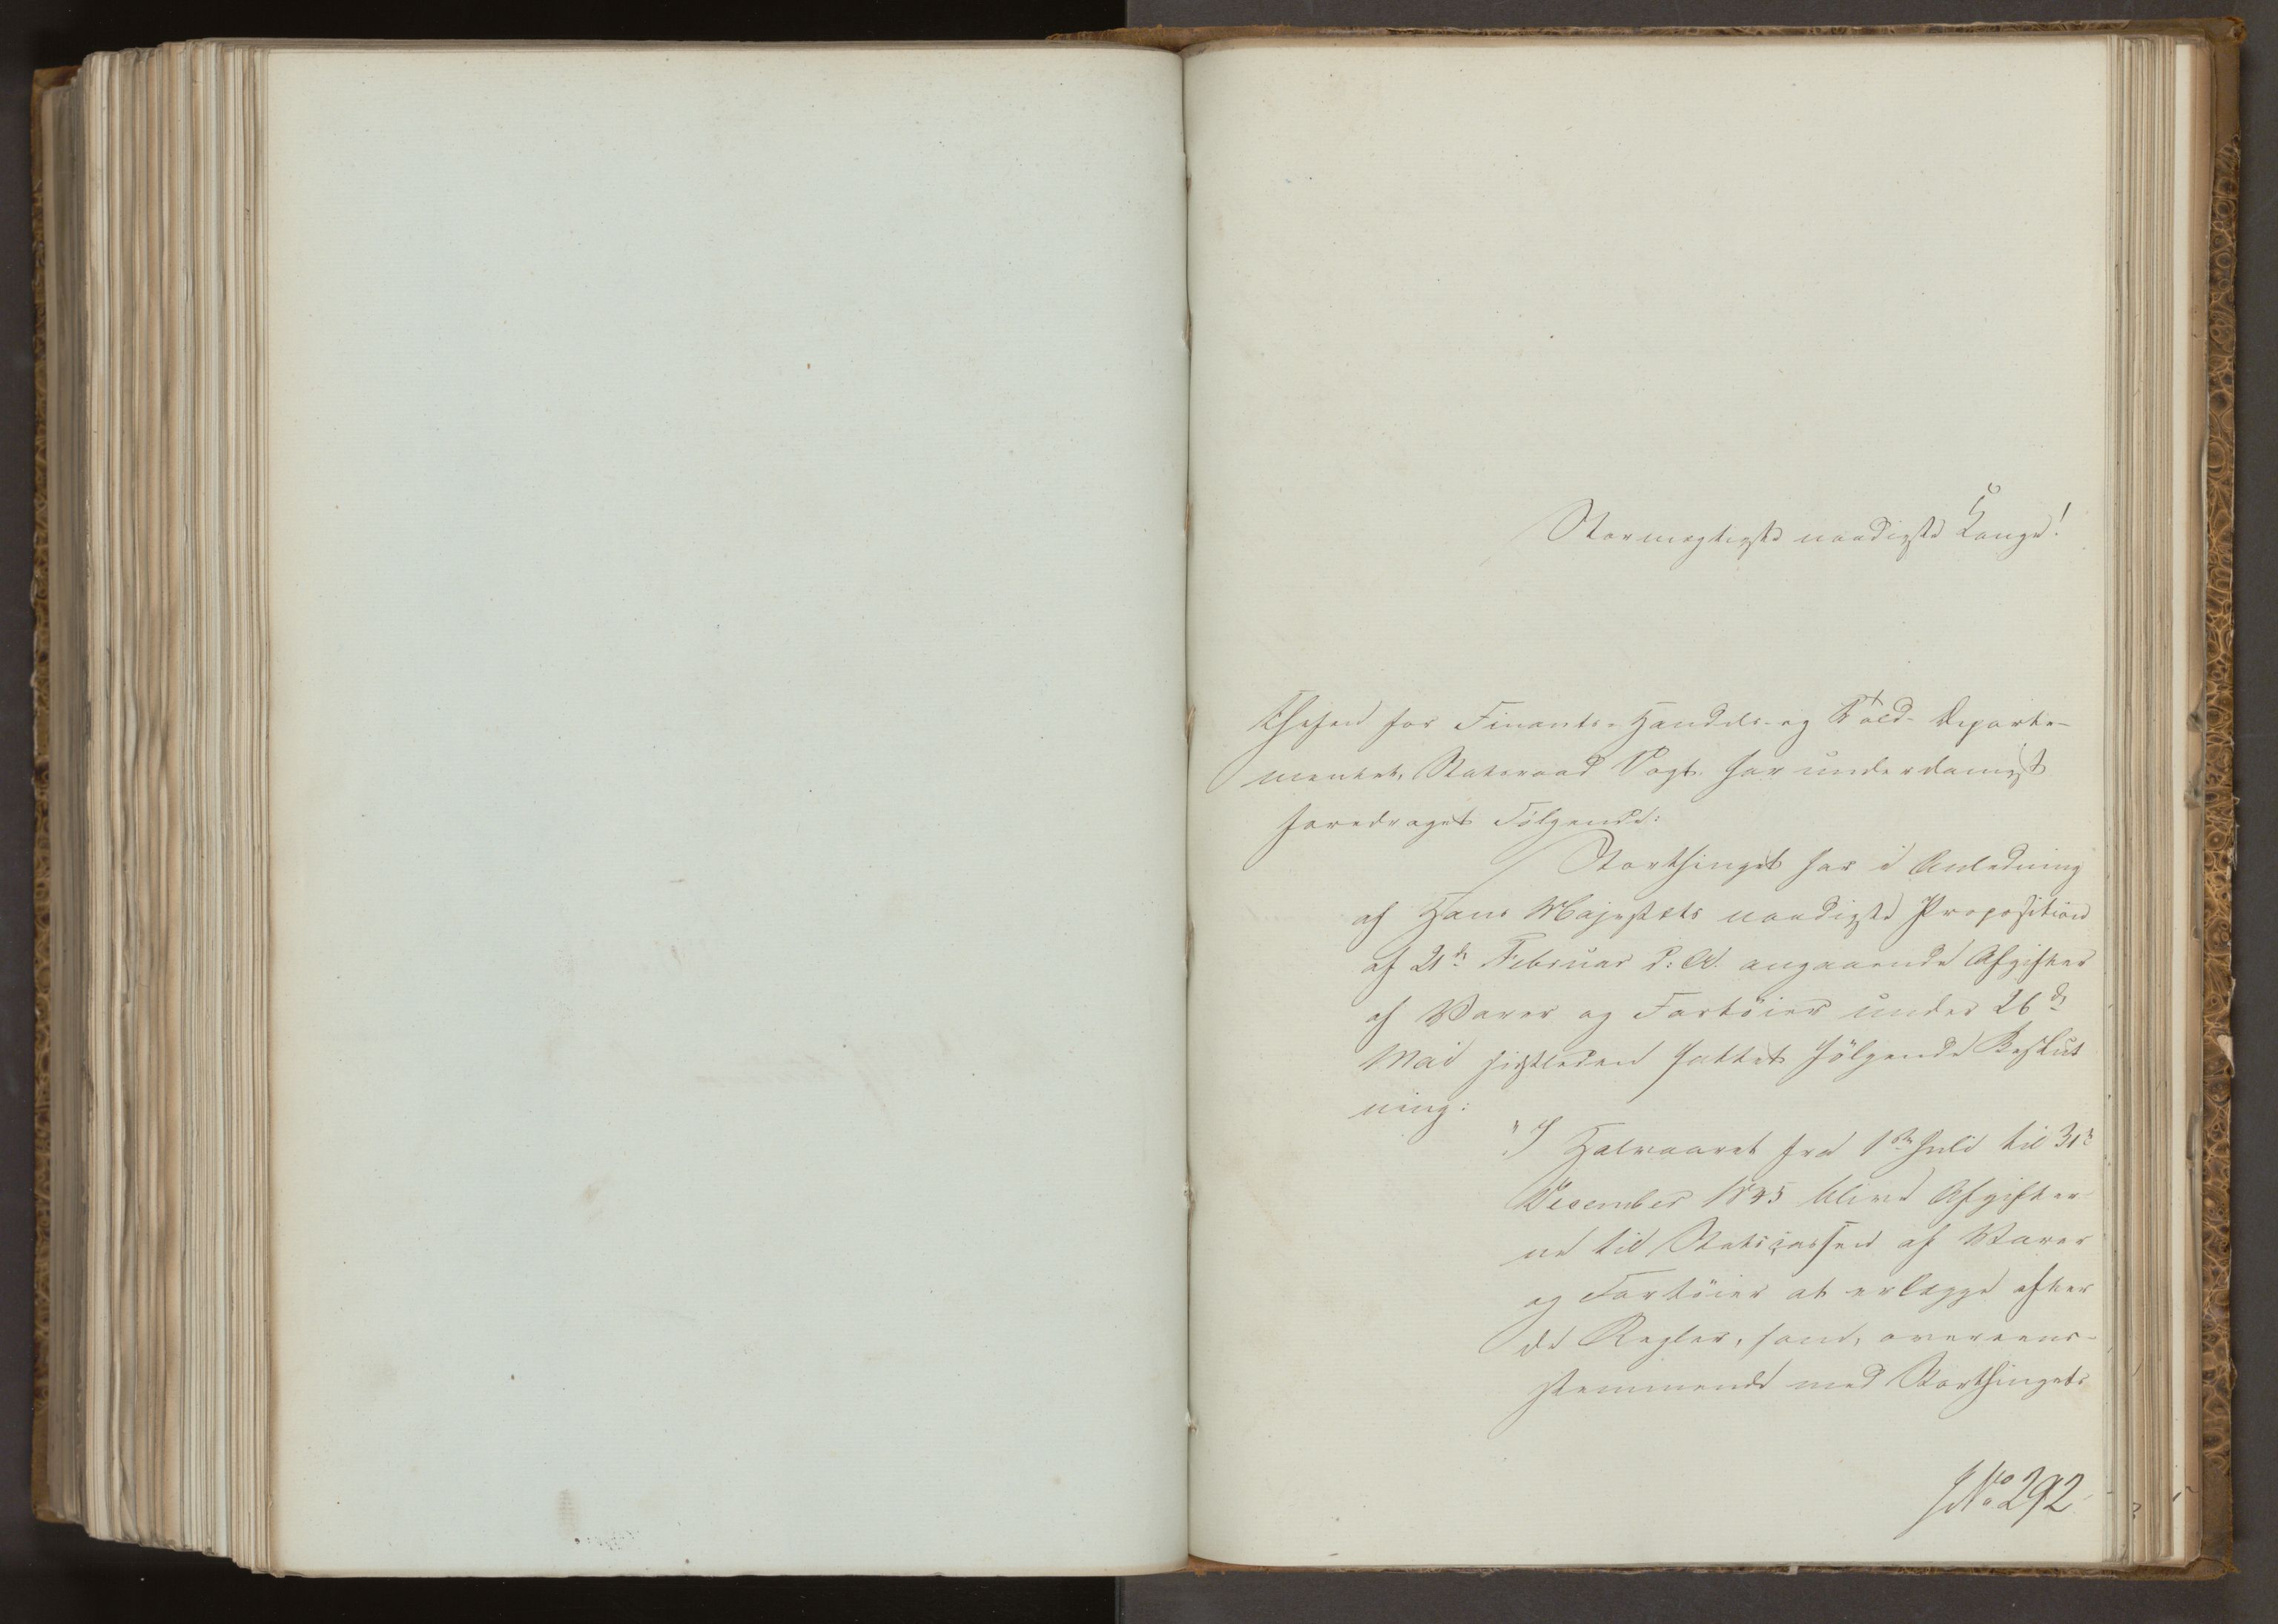 Stormægtigste naadigste Konge!
Chefen for Finants- Handels- og Told- Departe-
mentet, Statsraad Vogt har underdanigst
foredraget Følgende:
Storthinget har i Anledning
af Hans Majestæts naadigste Proposition
af 21de Februar d: A. angaaende Afgifter
af Varer og Fartöier under 26de
Mai sidstleden fattet fölgende Beslut
ning:
"I Halvaaret fra 1ste Juli til 31te
December 1845 blive Afgifter
ne til Statscassen af Varer
og Fartöier at erlægge efter
de Regler, som, overeens-
stemmende med Storthingets
JNo 292